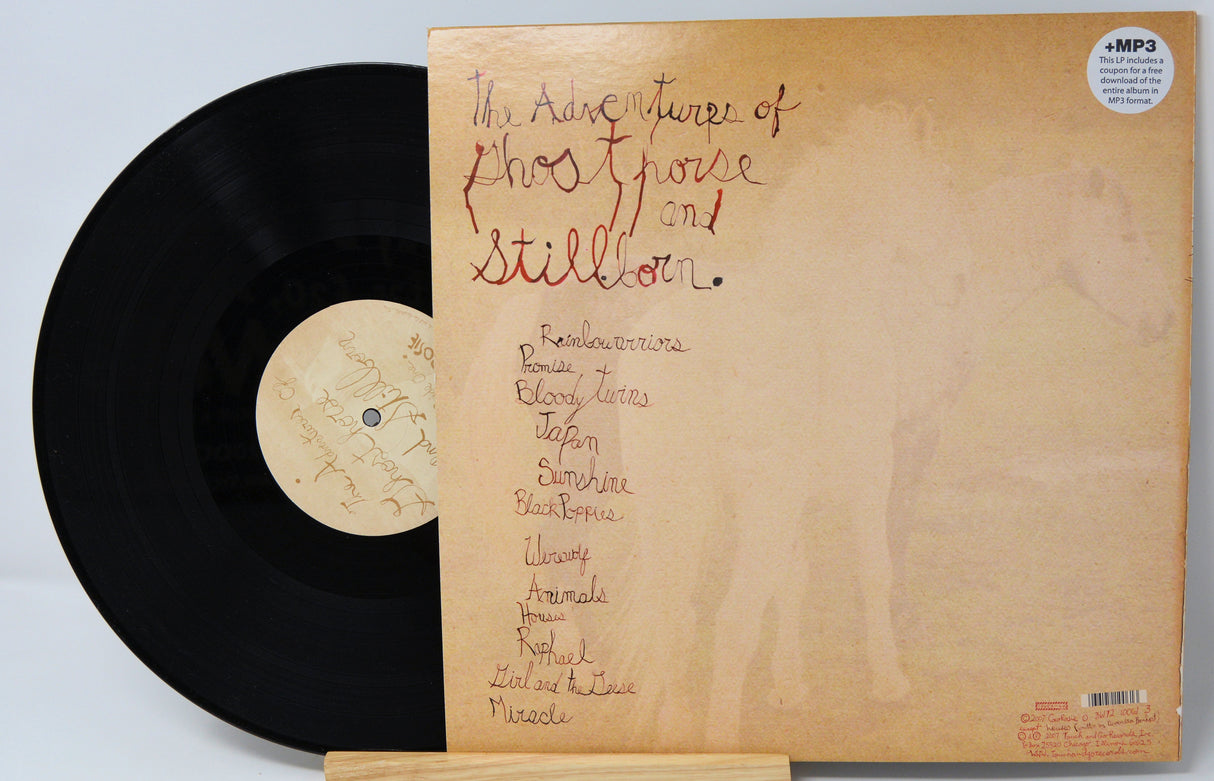 +MP3
This LP includes a
coupon for a free
download of the
entire album in
MP3 format.
The Adventures of
Ghosthorse
and
Stillborn.
Rainbowarriors
Promise
Bloody twins
Japan
Sunshine
Black Poppies
Werewolf
Animals
Houses
Raphael
Girl and the Geese
Miracle
The Adventures of
Ghosthorse
and Stillborn
©2007 CocoRosie
except houses
©℗ 2007 Touch and Go Records, Inc.
P.O. box 25520 Chicago, Illinois 60625
www.touchandgorecords.com